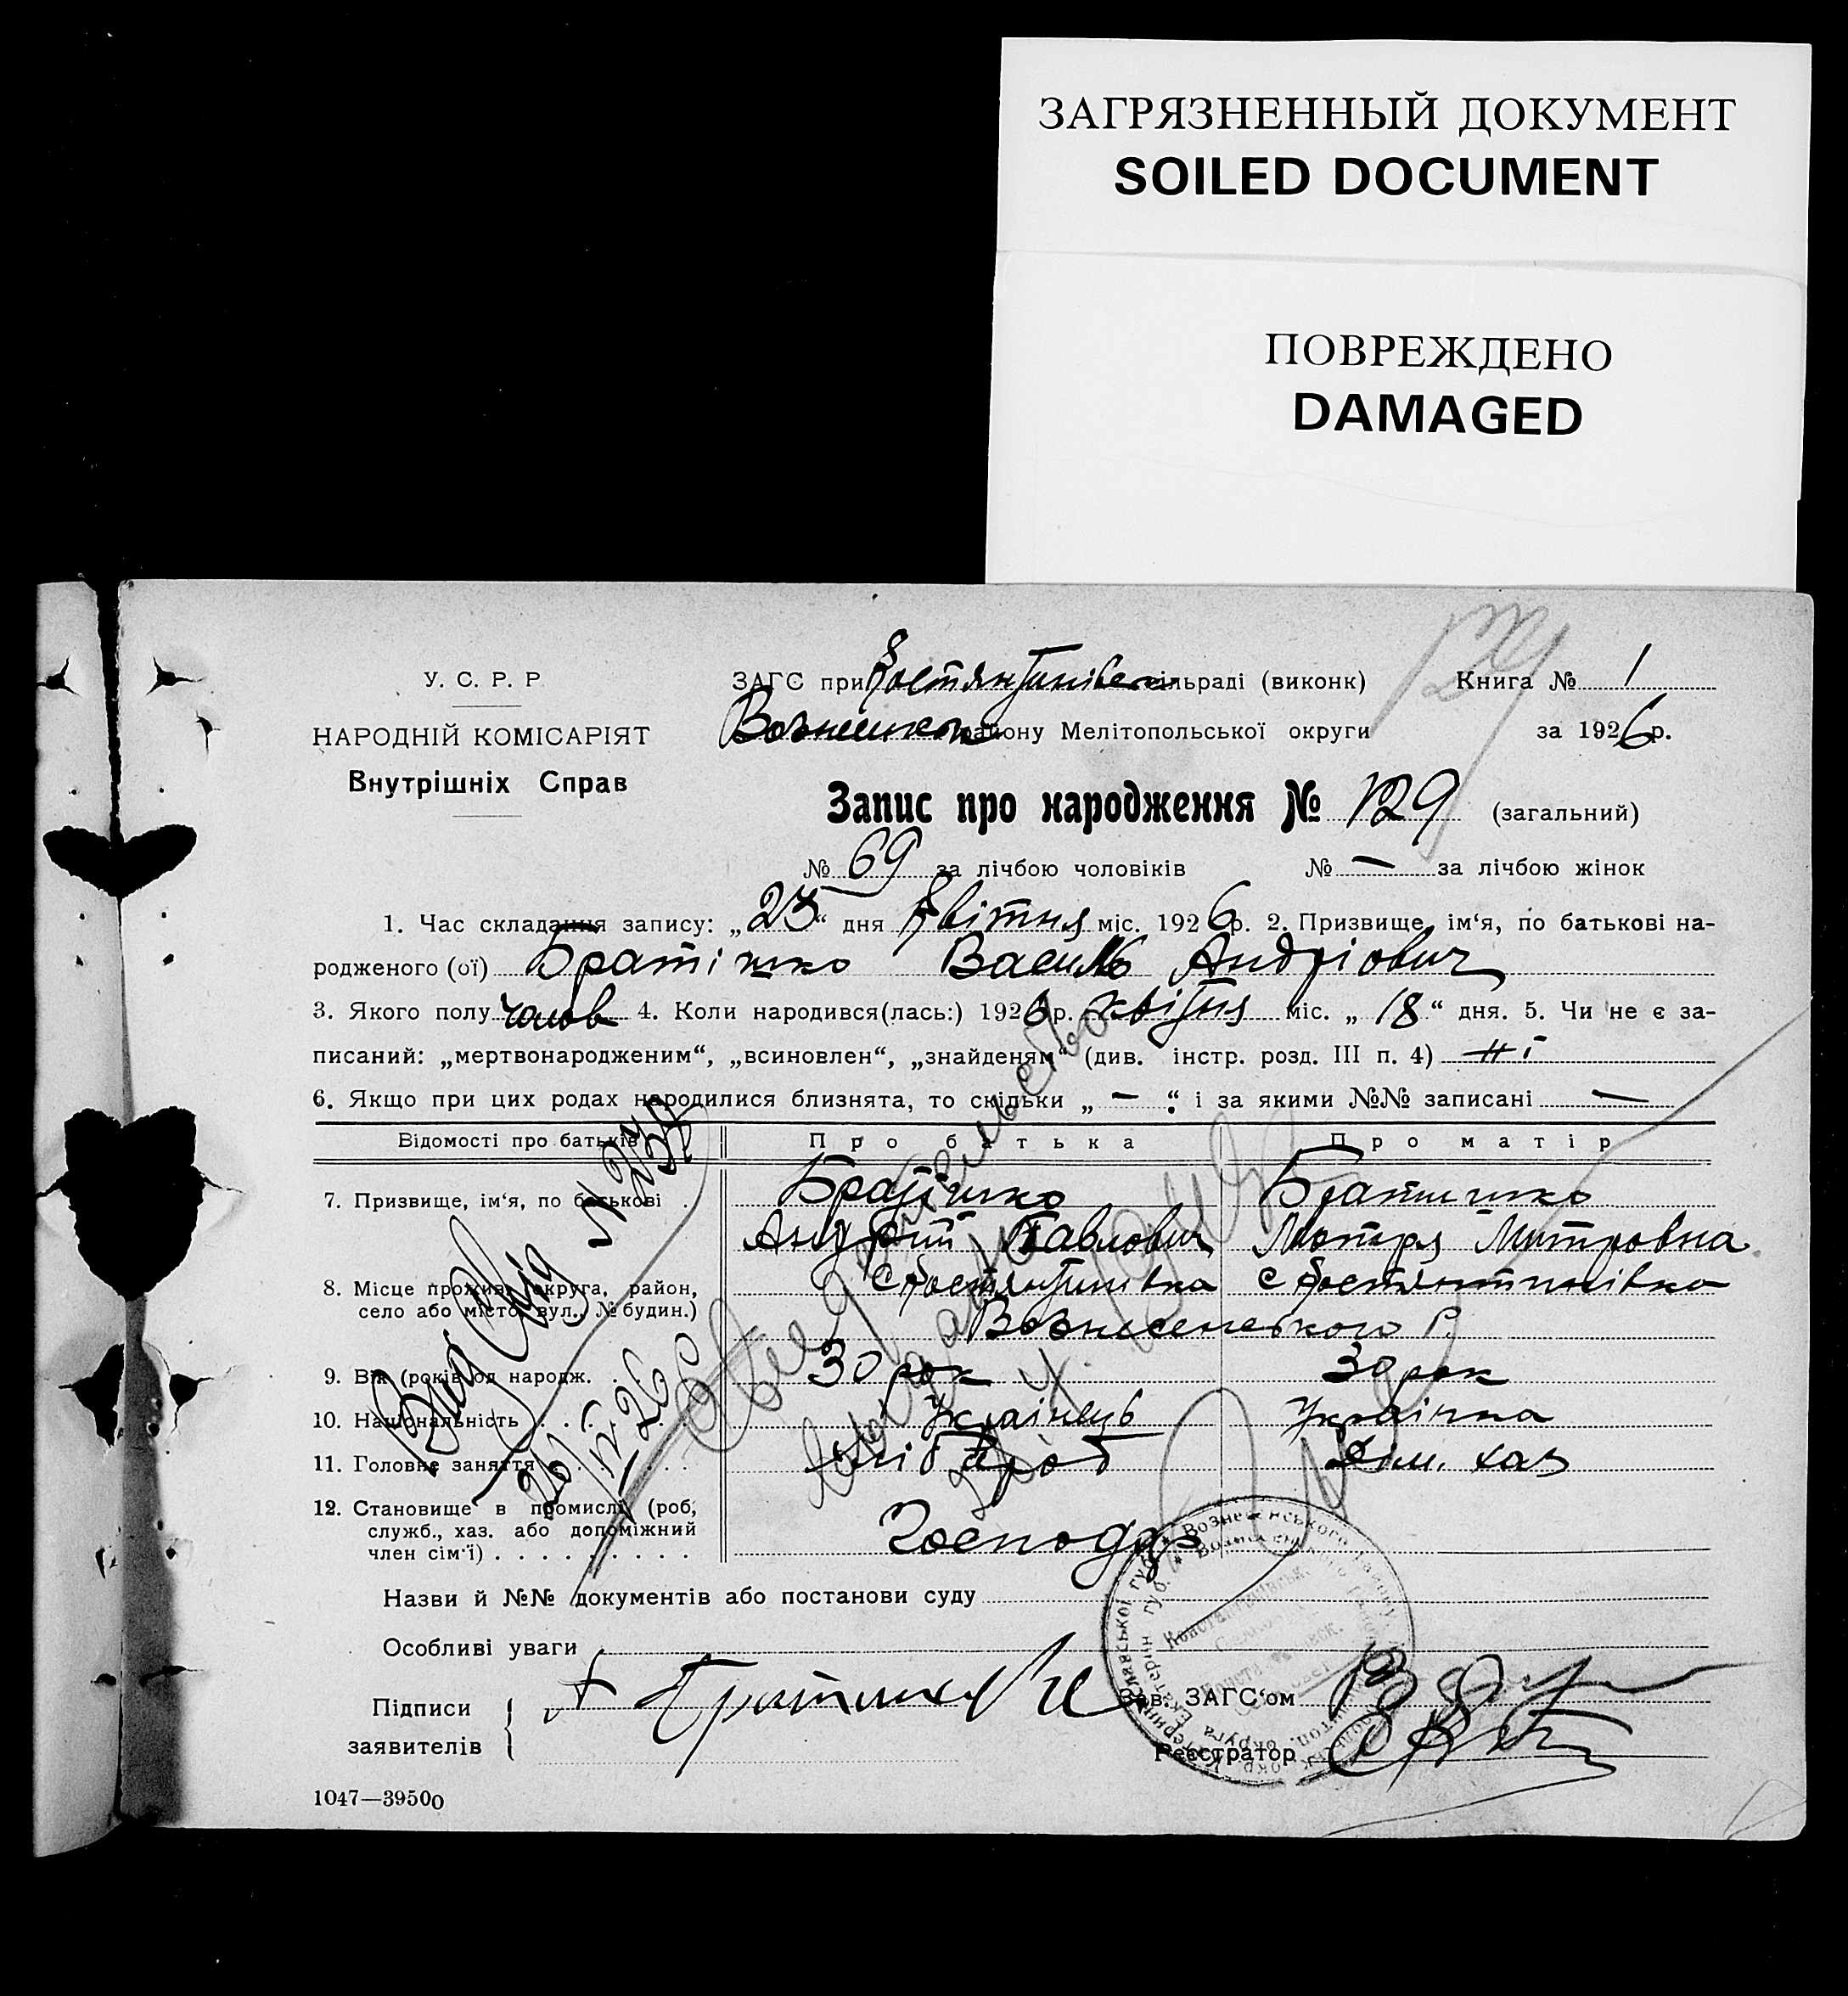 ЗАГРЯЗНЕННЫЙ ДОКУМЕНТ
SOILED DOCUMENT
ПОВРЕЖДЕНО
DAMAGED
129
У. С. Р. Р.
НАРОДНІЙ КОМІСАРІЯТ
Внутрішніх Справ
ЗАГС при Костянтинівск сільраді (виконк) Книга № 1
району Мелітопольської округи за 1926 р.
Запис про народження № 129 (загальний)
№ 69 за лічбою чоловіків № — за лічбою жінок
1. Час складання запису: „ “ дня Квітня міс. 1926 р. 2. Призвище, ім‘я, по батькові на-
родженого (ої) Братішко Василь Андріович
3. Якого полу чолов 4. Коли народився(лась:) 1926 р. квітня міс. „ 18 “ дня. 5. Чи не є за-
писаний: „мертвонародженим“, „всиновлен“, „знайденям“ (див. інстр. розд. III п. 4) ні
6. Якщо при цих родах народилися близнята, то скільки „ — “ і за якими №№ записані —
Відомості про батьків Про батька Про матір
7. Призвище, ім‘я, по батькові Братішко Братишко
Андрій Павлович Мотря Митровна
8. Місце прожив. округа, район, с Костянтинівка с Костянтинівка
село або місто, вул., № будин.) Вознесенського Р.
9. Вік (років од народж. 30 рок 30 рок
10. Національність Українець Українка
11. Головне заняття хліброб Дім. хаз
12. Становище в промислі (роб, служб., хаз. або допоміжний член сім‘ї) Господар
Назви й №№ документів або постанови суду
Особливі уваги
Підписи заявителів
Зав. ЗАГС‘ом
Реєстратор
1047—39500